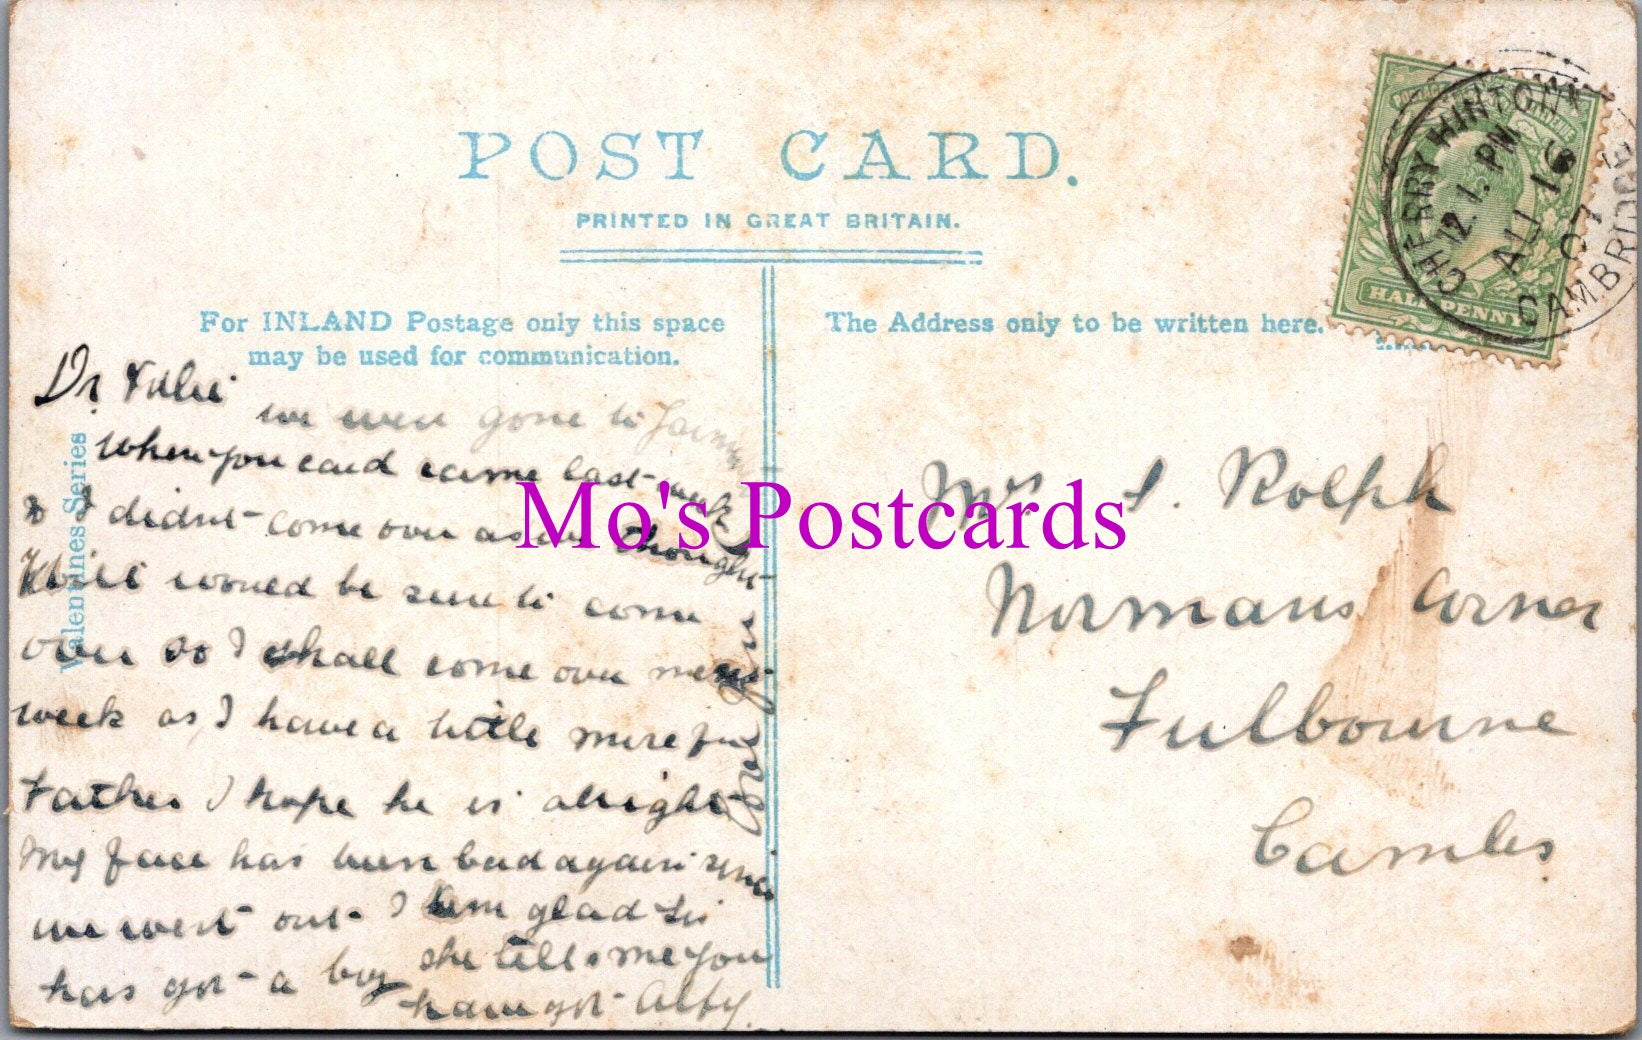 POST CARD.
PRINTED IN GREAT BRITAIN.
For INLAND Postage only this space
may be used for communication.
The Address only to be written here.
HALFPENNY
CHERRYHINTON
12.1. PM
AU 16
07
CAMBRIDGE
Valentines Series
Dr
we were gone to
when you card came last week
& I didnt come over as we thought
would be sure to come
over so I shall come over next
week as I have a little more for
Father I hope he is alright
My face has been bad again since
we went out I am glad
has got a boy she tells me you
have got Alfy
Mrs S. Rolph
Normans Corner
Fulbourne
Cambs
Mo's Postcards